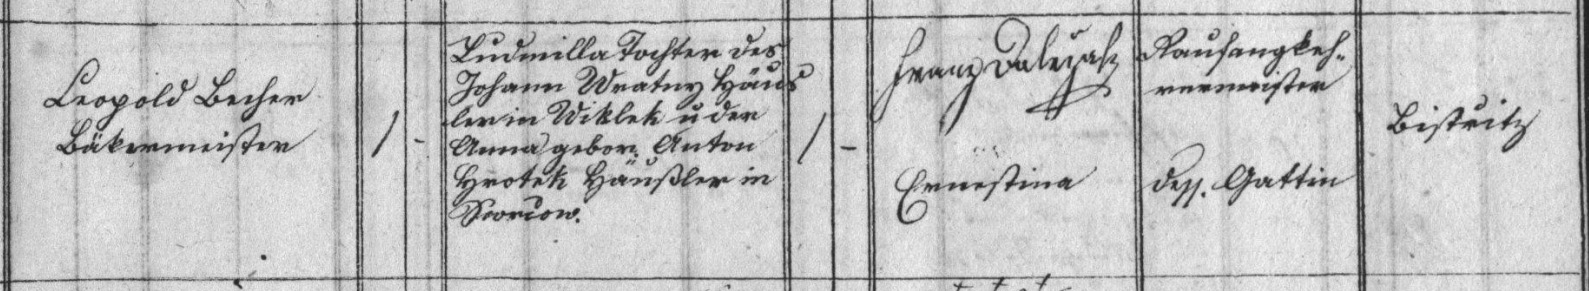 Leopold Becher
Bäkermeister
1 -
Ludmilla Tochter des
Johann Wratny Häus
ler in Wiklek u der
Anna gebor. Anton
Hrotek Häußler in
1 -
Franz
Ernestina
Raufangkeh-
rermeister
dess. Gattin
Bistritz